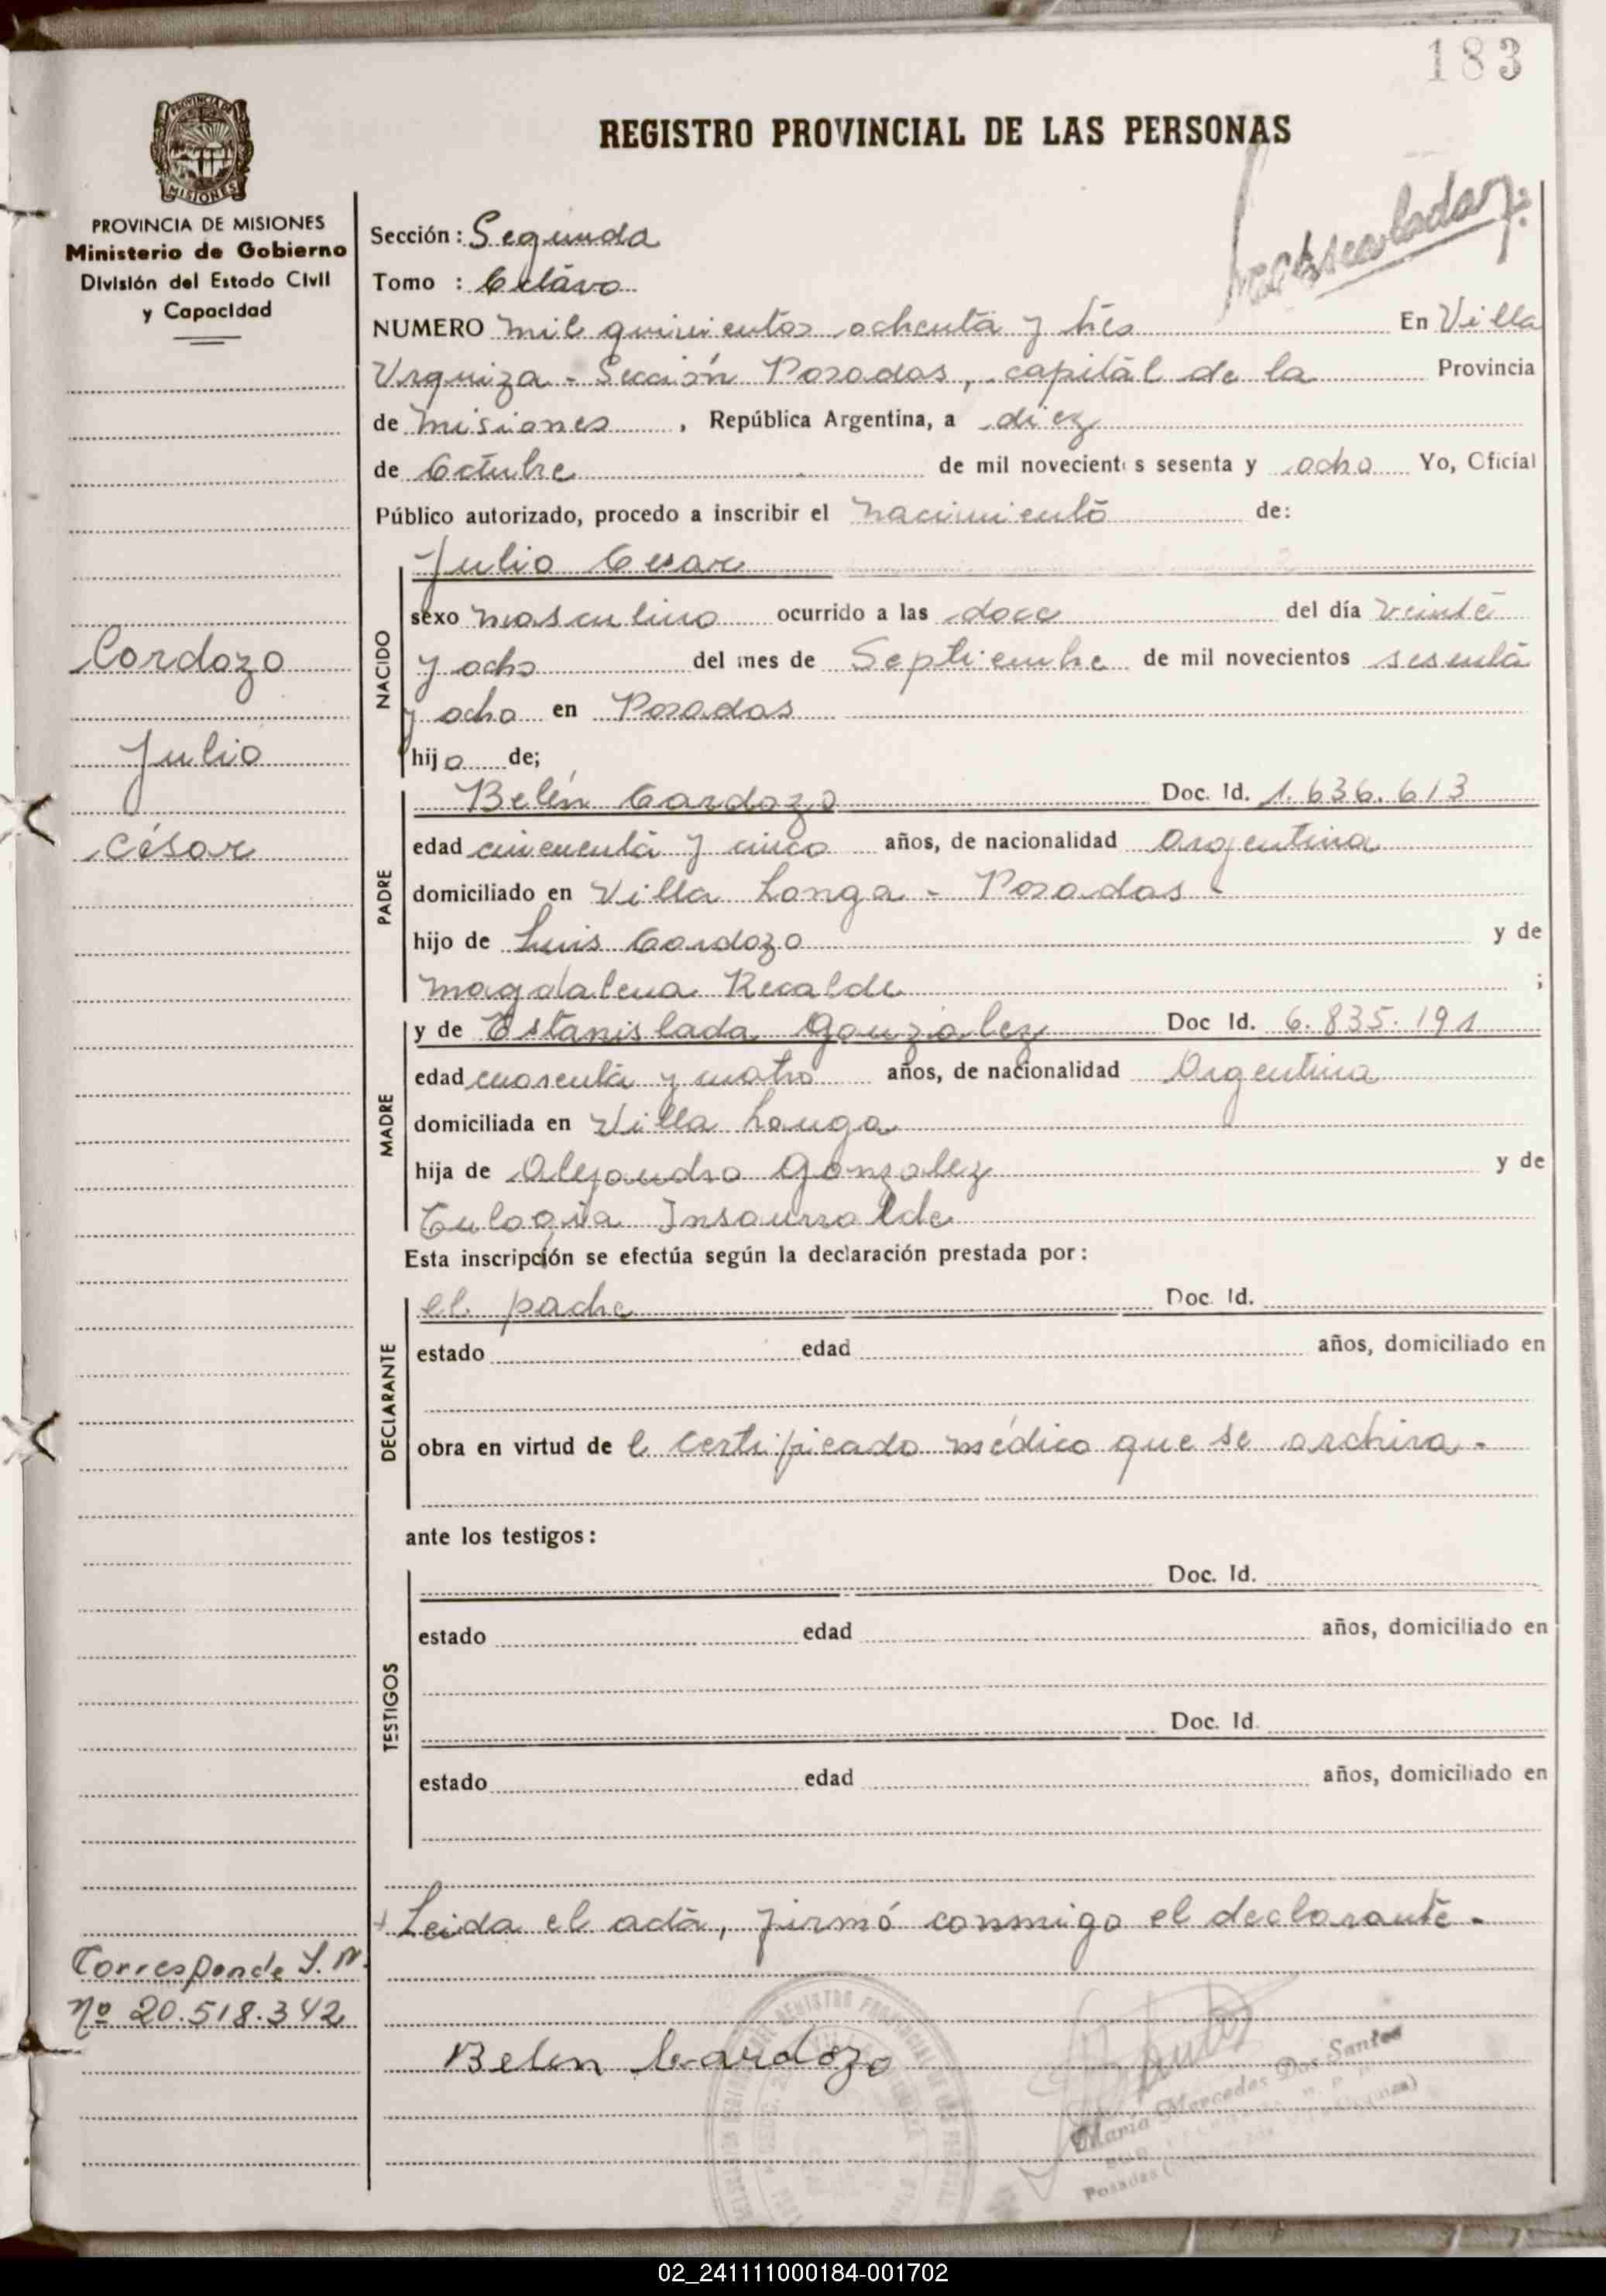 183
REGISTRO PROVINCIAL DE LAS PERSONAS
PROVINCIA DE MISIONES
Ministerio de Gobierno
División del Estado Civil
y Capacidad
Sección: Segunda
Tomo : Octavo
NUMERO mil quinientos ochenta y tres En Villa
Urquiza - Sección Posadas, capital de la Provincia
de Misiones, República Argentina, a diez
de Octubre de mil novecientos sesenta y ocho Yo, Oficial
Público autorizado, procedo a inscribir el nacimiento de:
NACIDO
Julio Cesar
sexo masculino ocurrido a las doce del día veinte
y ocho del mes de Septiembre de mil novecientos sesenta
y ocho en Posadas
hijo de;
Cardozo
Julio
César
PADRE
Belén Cardozo Doc. Id. 1.636.613
edad cincuenta y cinco años, de nacionalidad Argentina
domiciliado en Villa Longa - Posadas -
hijo de Luis Cardozo y de
Magdalena Recalde ;
MADRE
y de Estanislada Gonzalez Doc Id. 6.835.191
edad cuarenta y cuatro años, de nacionalidad Argentina
domiciliada en Villa Longa
hija de Alejandro Gonzalez y de
Eulogia Insaurralde
Esta inscripción se efectúa según la declaración prestada por:
DECLARANTE
el padre Doc. Id.
estado edad años, domiciliado en
obra en virtud de l certificado médico que se archiva -
ante los testigos:
TESTIGOS
Doc. Id.
estado edad años, domiciliado en
Doc. Id.
estado edad años, domiciliado en
Leida el acta, firmó conmigo el declarante -
Corresponde I.N.
Nº 20.518.342
Belen Cardozo
Maria Mercedes Dos Santos
Posadas
02_241111000184-001702